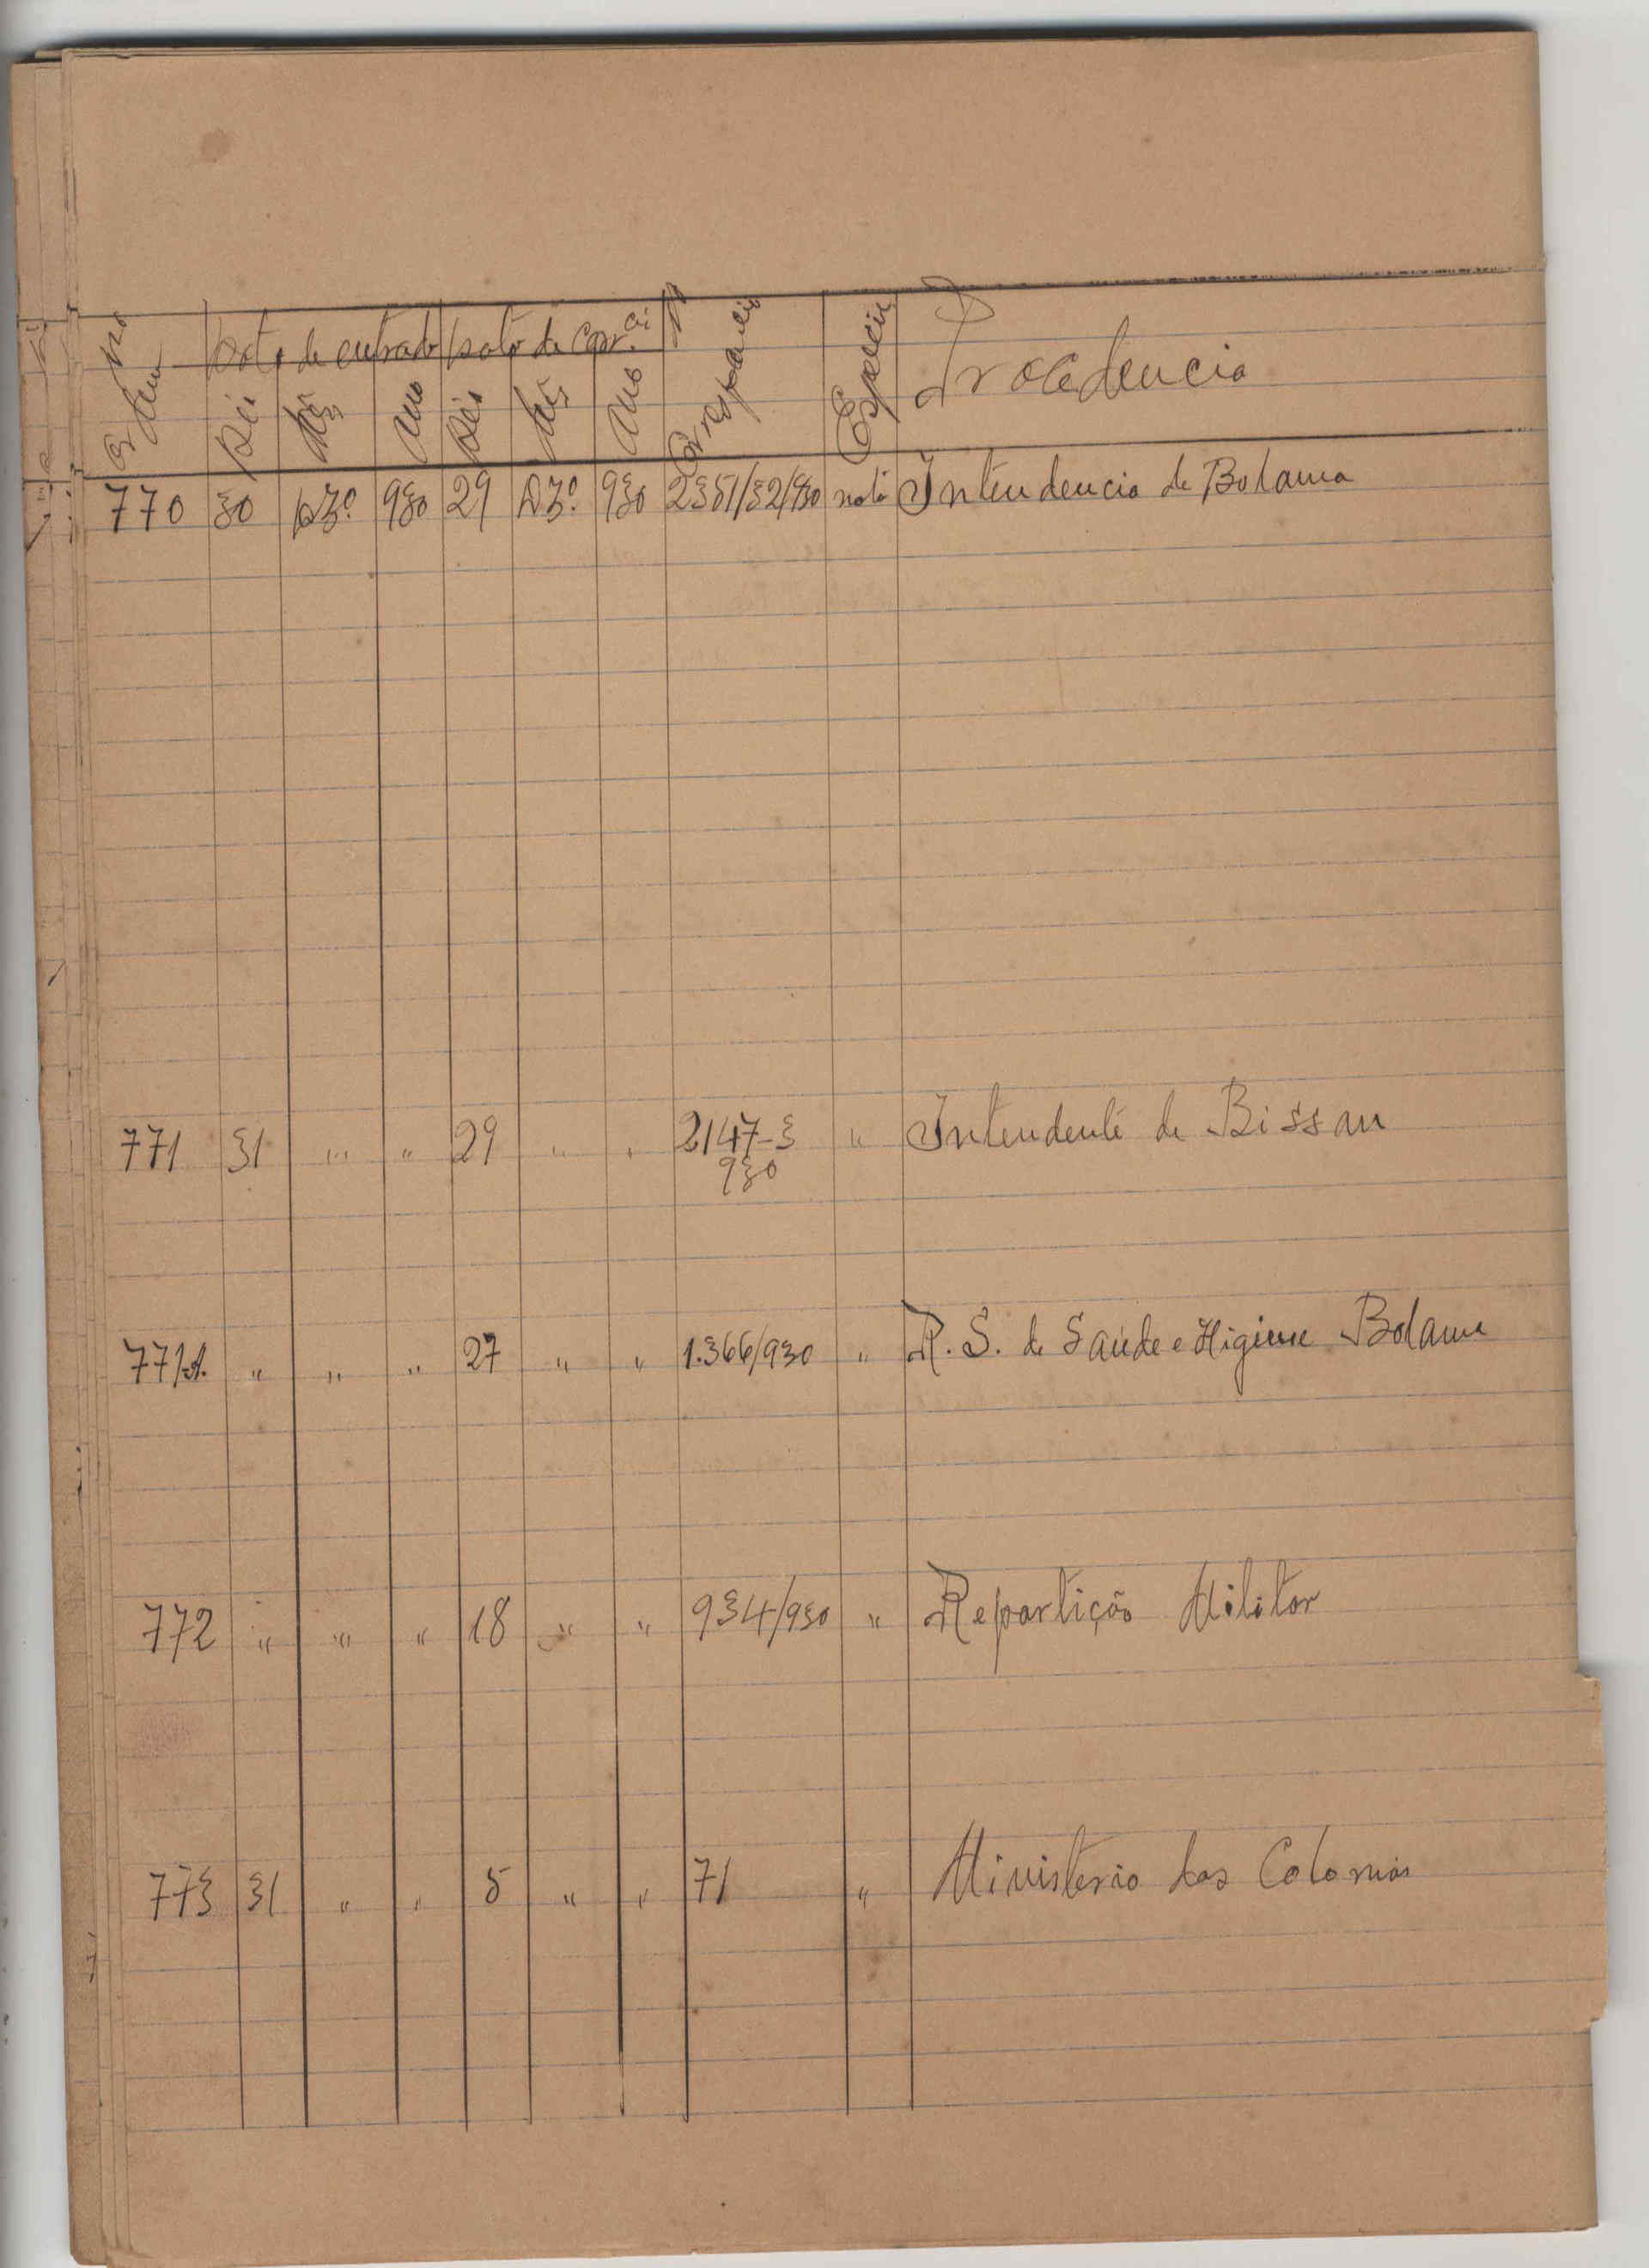 Nº Ordem Data de entrada Data da Corr.cia Nº Correspondencia Especie Procedencia
Dia Mês Ano Dia Mês Ano
770 30 Dzº 930 29 Dzº 930 2351/32/930 nota Intendencia de Bolama
771 31 " " 29 " " 2147-3 " Intendente de Bissau
930
771-A. " " " 27 " " 1.366/930 " R. S. de Saúde e Higiene Bolama
772 " " " 18 " " 934/930 " Repartição Militar
773 31 " " 5 " " 71 " Ministerio das Colonias